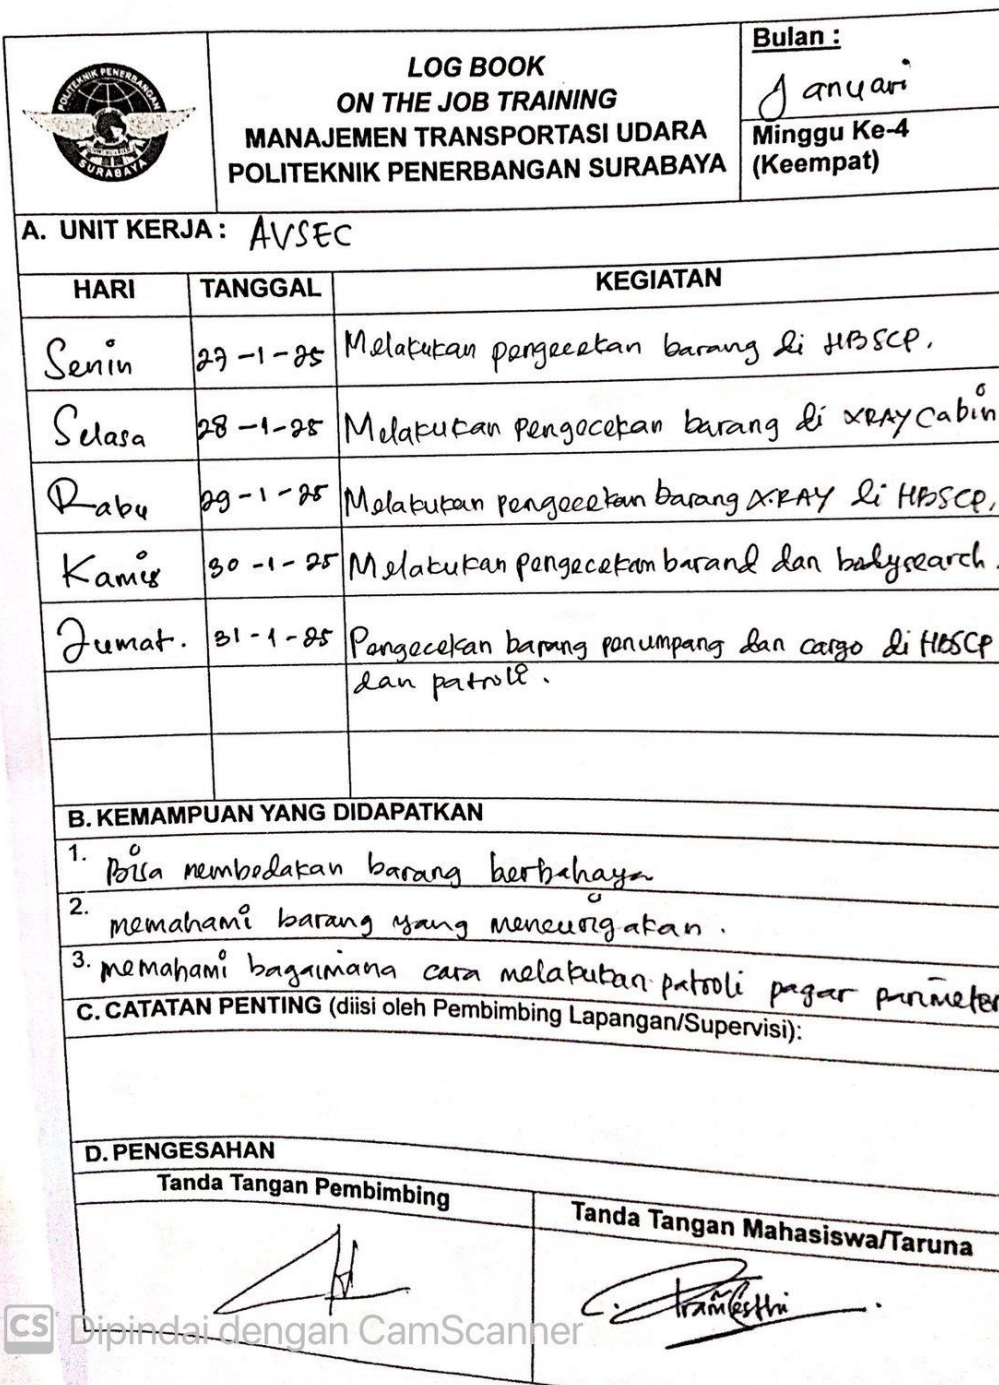 POLITEKNIK PENERBANGAN
SURABAYA
LOG BOOK
ON THE JOB TRAINING
MANAJEMEN TRANSPORTASI UDARA
POLITEKNIK PENERBANGAN SURABAYA
Bulan :
Januari
Minggu Ke-4
(Keempat)
A. UNIT KERJA : AVSEC
HARI TANGGAL KEGIATAN
Senin 27-1-25 Melakukan pengecekan barang di HBSCP.
Selasa 28-1-25 Melakukan pengecekan barang di XRAY Cabin
Rabu 29-1-25 Melakukan pengecekan barang X-RAY di HBSCP.
Kamis 30-1-25 Melakukan pengecekan barand dan bodysearch.
Jumat. 31-1-25 Pengecekan barang penumpang dan cargo di HBSCP
dan patroli.
B. KEMAMPUAN YANG DIDAPATKAN
1. Bisa membedakan barang berbahaya
2. memahami barang yang mencurigakan.
3. memahami bagaimana cara melakukan patroli pagar parimeter
C. CATATAN PENTING (diisi oleh Pembimbing Lapangan/Supervisi):
D. PENGESAHAN
Tanda Tangan Pembimbing
Tanda Tangan Mahasiswa/Taruna
CS Dipindai dengan CamScanner